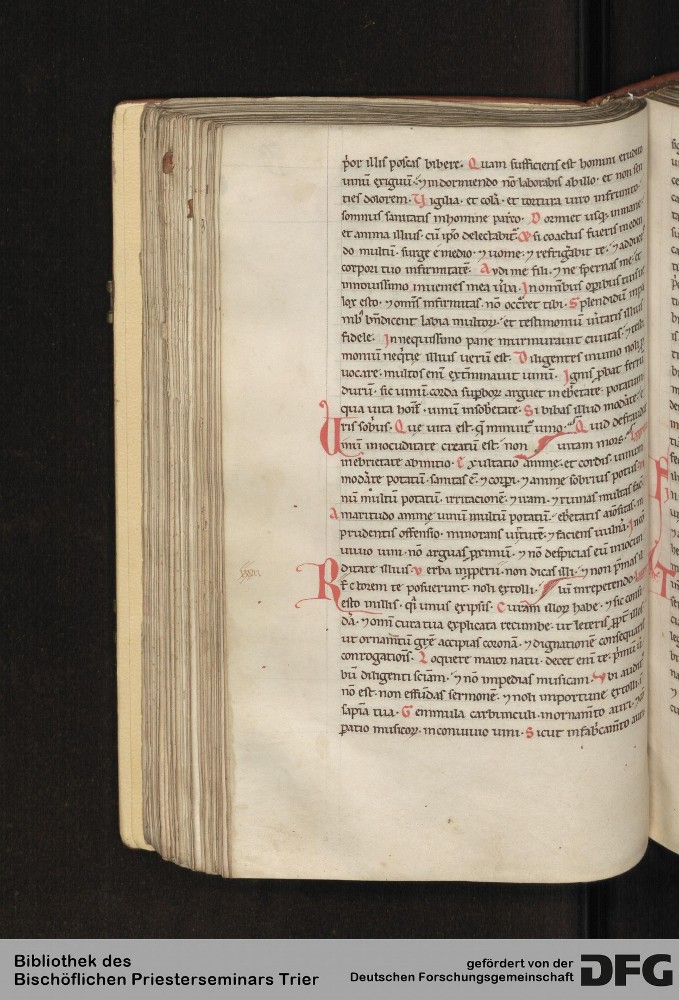 p̄or illis poscas bibere. Quam sufficiens est homini erudito
uinū exiguū. ⁊ in dormiendo nō laborabis ab illo. et non sen
ties dolorem. Vigilia. et colā. et tortura uiro infrunito.
somnus sanitatis in homine parco. Dormiet usq; in mane.
et anima illius. cū ip̄o delectabit̄. Et si coactus fueris in eden
do multū. surge e medio. ⁊ uome. ⁊ refrigābit te. ⁊ n̄ adduces
corpori tuo infirmitatē. Audi me fili. ⁊ ne spernas me. et
in nouissimo inuenies mea ūba. In omnibus opibus tuis ue
lox esto. ⁊ omīs infirmitas. nō occret tibi. Splendidū in pa
nib; bn̄dicent labia multoꝝ. et testimoniū ūitatis illius
fidele. In nequissimo pane murmurauit ciuitas. ⁊ testi
moniū neq̄tie illius uerū est. Diligentes in uino noli ꝓ
uocare. multos enī extmīnauit uinū. Ignis ꝓbat ferrū
durū. sic uinū corda suꝑboꝝ arguet in ebetate potatum.
qua uita hoīs. uinum in sobetate. Si bibas illud modate. e
ris sob̄us. Que uita est. q̄ minuit̄ uino. Quid defraudat
Uinū in iocunditate creatū est. non uitam mors.
in ebrietate ab initio. Exultatio anime. et cordis. uinum
modate potatū. sanitas ē. ⁊ corpi. ⁊ anime sobrius potus.
nū multū potatū. irritationē. ⁊ iram. ⁊ ruinas multas fac.
Amaritudo anime uinū multū potatū. ebetatis aīositas. in
prudentis offensio. minorans uirtutē. ⁊ faciens uulnā. In con
uiuio uini. nō arguas ꝓximū. ⁊ nō despicias eū in iocun
ditate illius. Verba inꝓperii. non dicas illi. ⁊ non p̄mas il
Rectorem te posuerunt. noli extolli. lū in repetendo.
esto in illis. q̄i unus ex ipsis. Curam illoꝝ habe. ⁊ sic consi
dā. ⁊ omī cura tua explicata recumbe. ut leteris ꝓpt illos.
ut ornam̄tū gr̄e accipias coronā. ⁊ dignationē consequaris
corrogatiois. Loquere maior natu. decet enī te. p̄mū ū
bū diligenti sciam. ⁊ nō impedias musicam. Vbi audit̄
nō est. non effundas sermonē. ⁊ noli importune extolli. in
sapīa tua. Gemmula carbunculi. in ornam̄to auri. ⁊
paratio musicoꝝ. in conuiuio uini. Sicut in fabcam̄to auri
Bibliothek des
Bischöflichen Priesterseminars Trier
gefördert von der
Deutschen Forschungsgemeinschaft
DFG